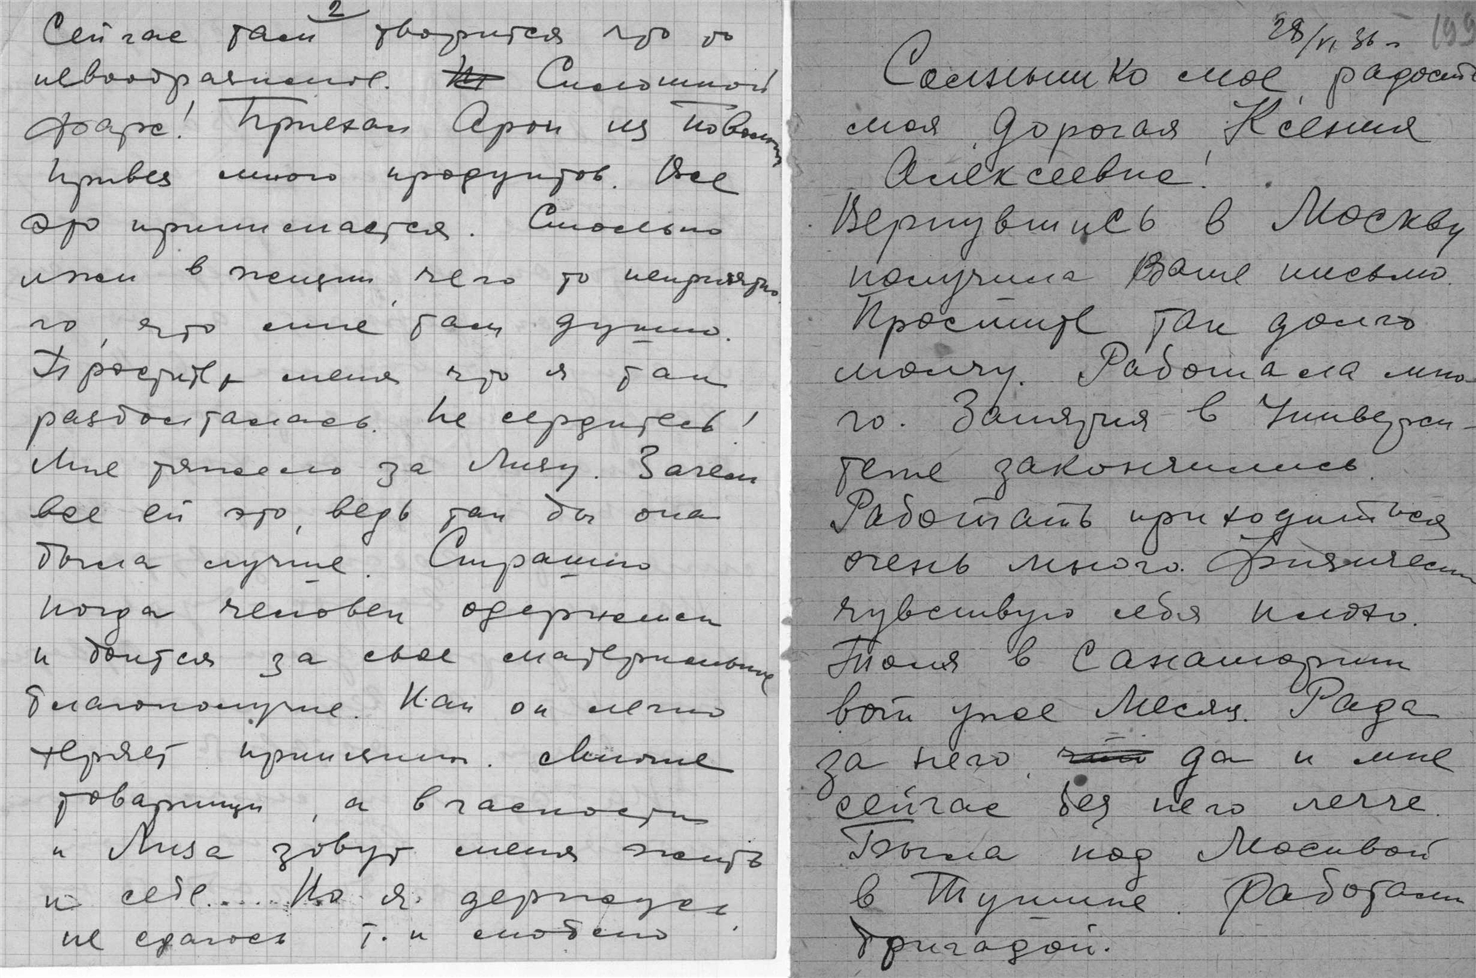 2
Сейчас там творится что то
невообразимое. Сплошной
фарс! Приехал Арон из
привез много продуктов. Все
это принимается. Столько
лжи в жизни, чего то неприятно
го, что мне там душно.
Простите меня что я так
разболталась. Не сердитесь!
Мне тяжело за Лизу. Зачем
все ей это, ведь так бы она
была лучше. Страшно
когда человек одержим
и боится за свое материальное
благополучие. Как он легко
теряет принципы. Многие
товарищи, а в часности
и Лиза зовут меня жить
к себе..... Но я держусь,
не сдаюсь т. к
28/VI 36 г. 199
Солнышко мое, радость
моя дорогая Ксения
Алексеевна!
Вернувшись в Москву
получила Ваше письмо.
Простите так долго
молчу. Работала мно-
го. Занятия в Универси-
тете закончились.
Работать приходиться
очень много. Физически
чувствую себя плохо.
Толя в Санатории
вот уже месяц. Рада
за него, да и мне
сейчас без него легче.
Была под Москвой
в Тушине. Работали
бригадой.